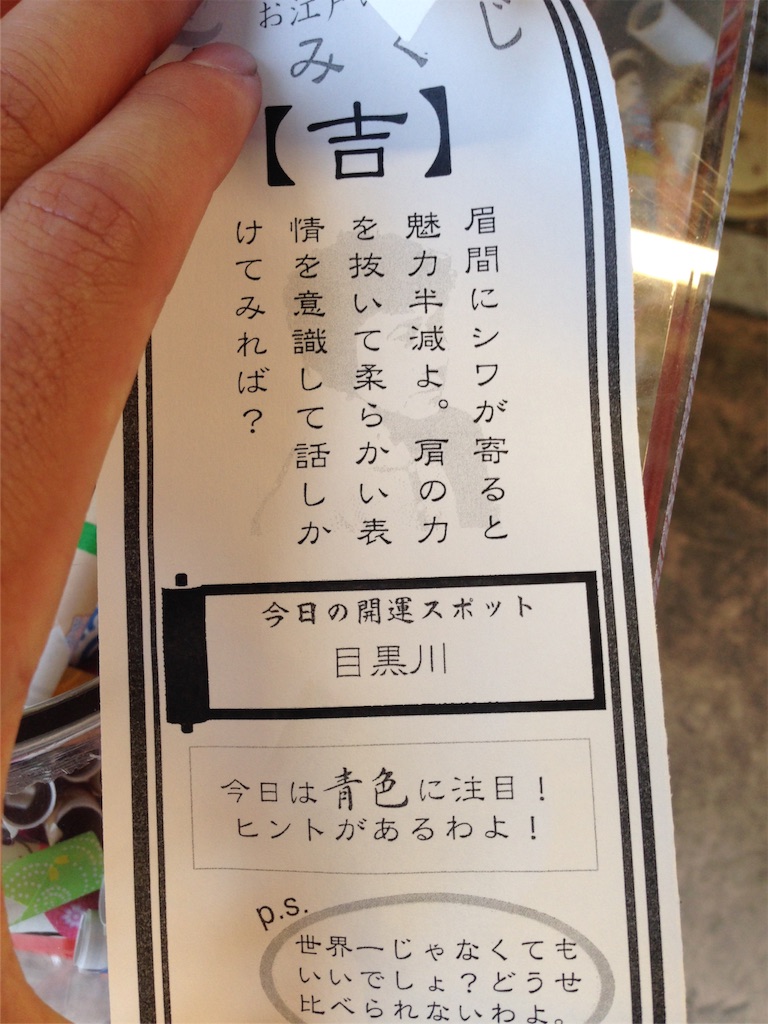 お江戸
みくじ
【吉】
眉間にシワが寄ると
魅力半減よ。肩の力
を抜いて柔らかい表
情を意識して話しか
けてみれば?
今日の開運スポット
目黒川
今日は青色に注目!
ヒントがあるわよ!
p.s.
世界一じゃなくても
いいでしょ?どうせ
比べられないわよ。